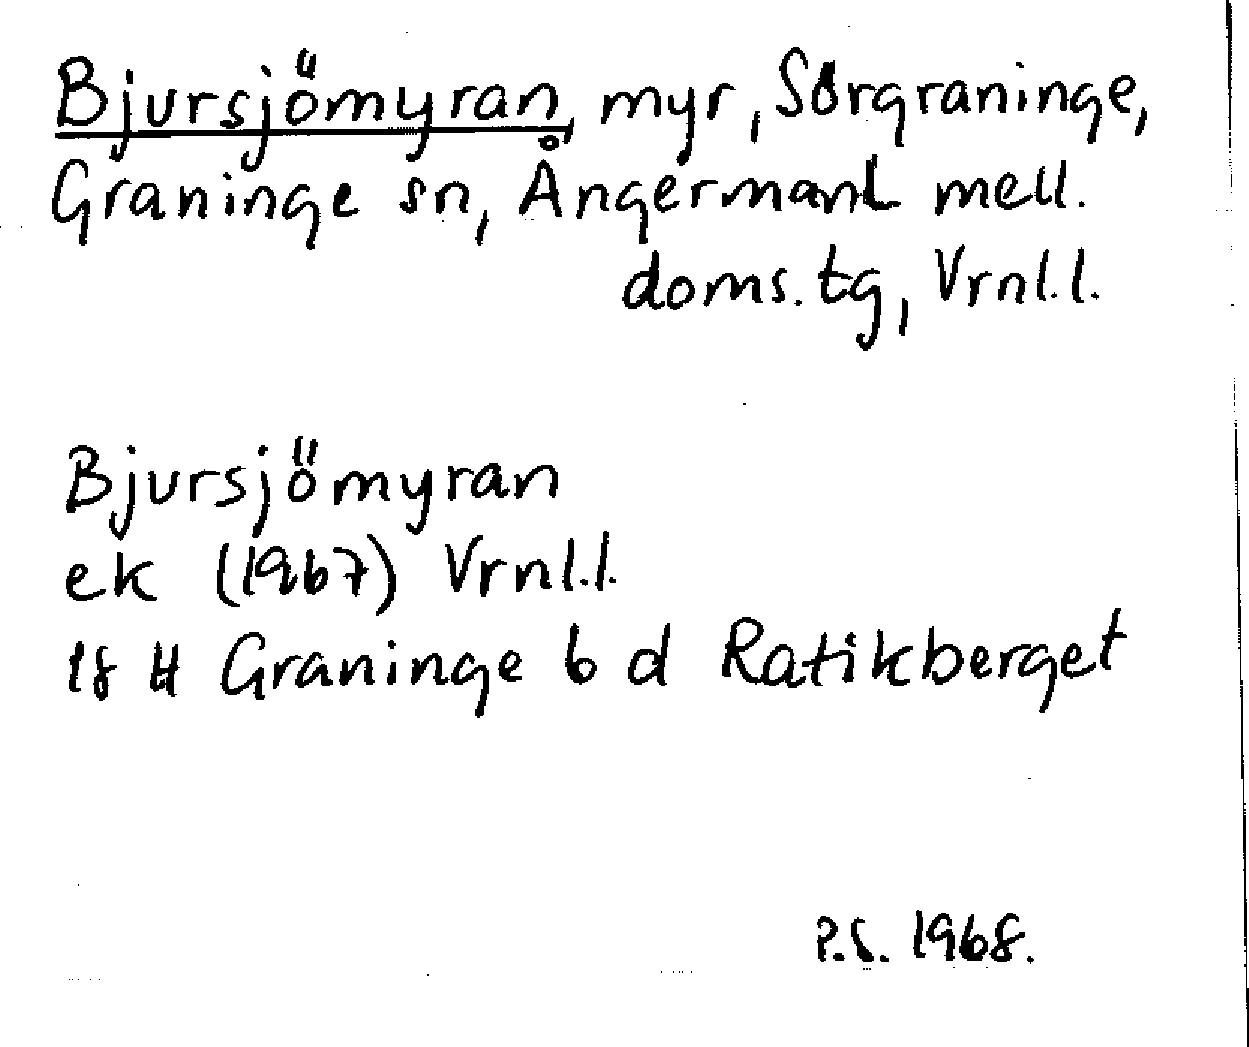 Bjursjömyran, myr, Sörgraninge,
Graninge sn, Ångermanl. mell.
doms. tg, Vrnl.l.
Bjursjömyran
ek (1967) Vrnl.l.
18 H Graninge b d Ratikberget
P.S. 1968.